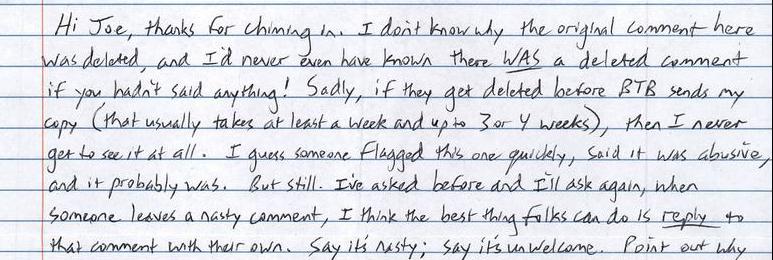 Hi Joe, thanks for chiming in. I don't know why the original comment here
was deleted, and I'd never even have known there WAS a deleted comment
if you hadn't said anything! Sadly, if they get deleted before BTB sends my
copy (that usually takes at least a week and up to 3 or 4 weeks), then I never
get to see it at all. I guess someone flagged this one quickly, said it was abusive,
and it probably was. But still. I've asked before and I'll ask again, when
someone leaves a nasty comment, I think the best thing folks can do is reply to
that comment with their own. Say it's nasty; say it's unwelcome. Point out why